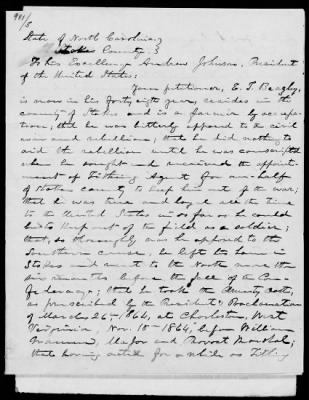 State of North Carolina
Stokes County
To his Excellency Andrew Johnson, President
of the United States:
Your petitioner, E. T.
is now in his forty eighth year, resides in the
county of Stokes and is a farmer by occupa-
tion; that he was bitterly opposed to the civil
war and rebellion; that he did nothing to
aid the rebellion until he was conscripted
when he sought and received the appoint-
ment of Tithing Agent for one-half
of Stokes county to keep him out of the war;
that he was true and loyal all the time
to the United States in so far as he could
be to keep out of the field as a soldier;
that, so thoroughly was he opposed to the
Southern cause, he left his home in
Stokes and went to the North more than
six months before the fall of the Con-
federacy; that he took the Amnesty oath,
as prescribed by the President's Proclamation
of March 26th 1864, at Charleston, West
Virginia, Nov. 18th 1864, before William
Major and Provost Marshal;
that having acted for a while as Tithing